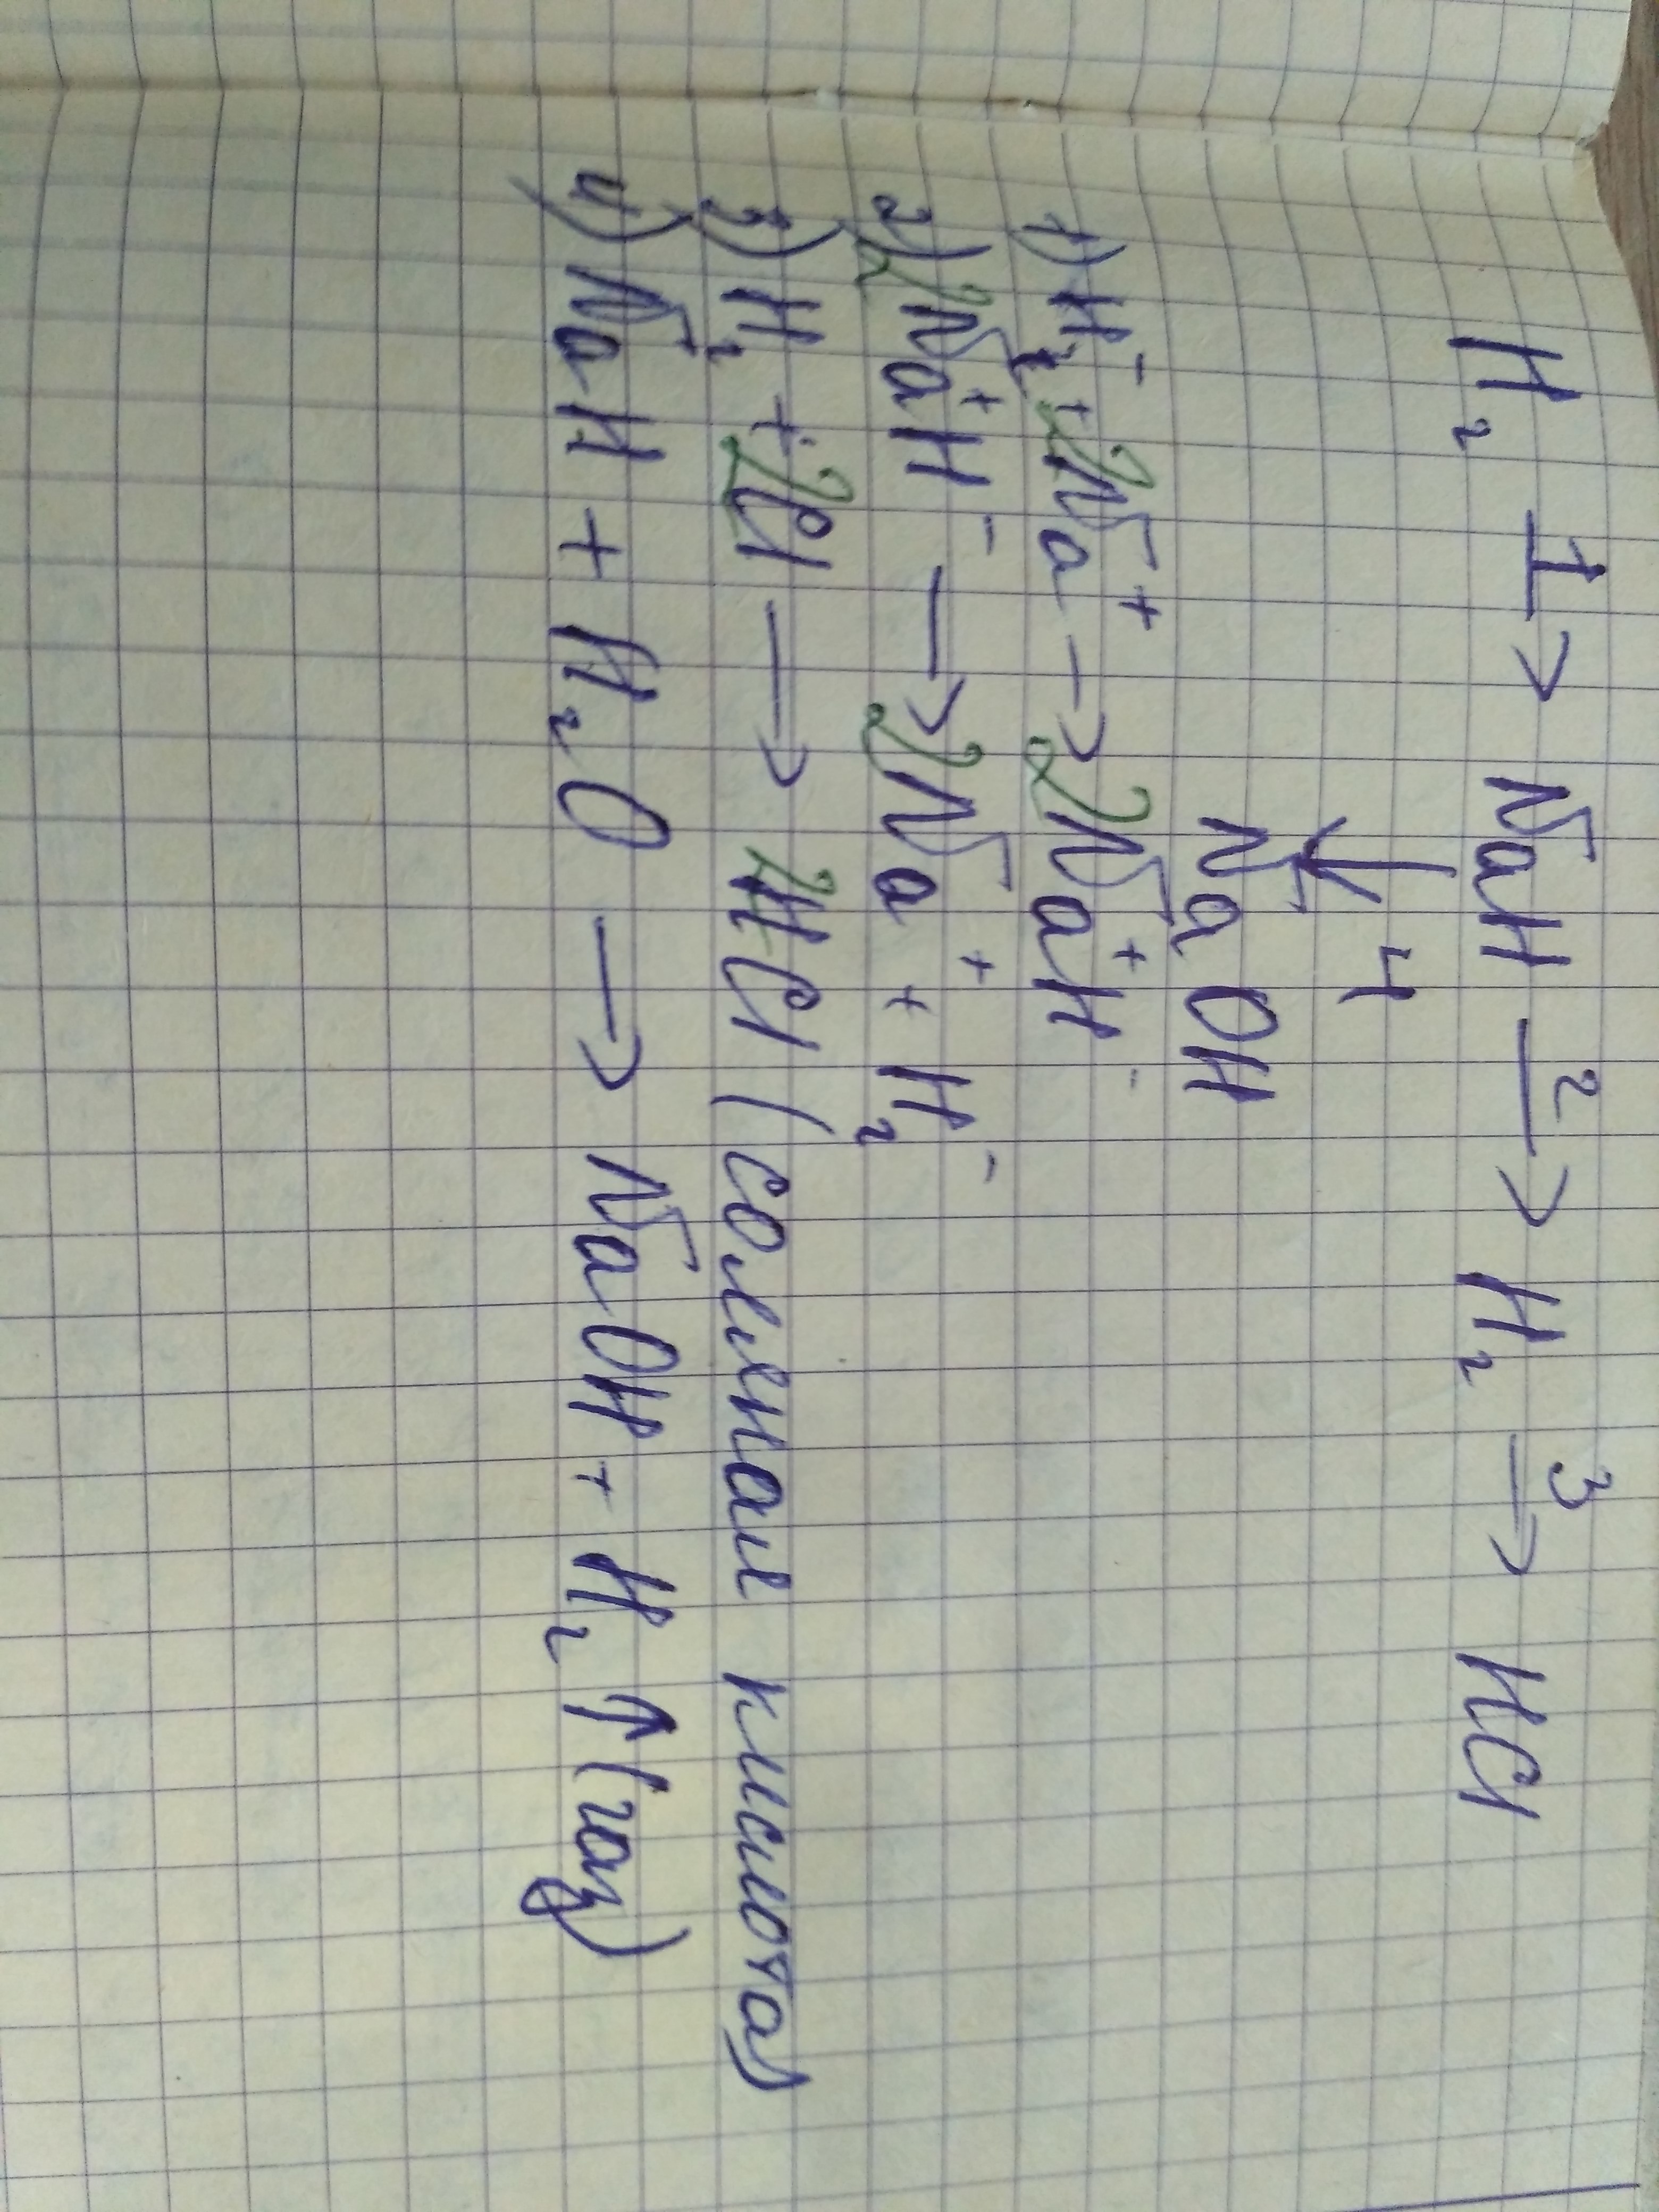 H₂ 1→ NaH 2→ H₂ 3→ HCl
↓ 4
NaOH
1) H₂⁻ + 2Na⁺ → 2Na⁺H⁻
2) 2Na⁺H⁻ → 2Na⁺ + H₂⁻
3) H₂ + 2Cl → 2HCl (соляная кислота)
4) NaH + H₂O → NaOH + H₂↑(газ)